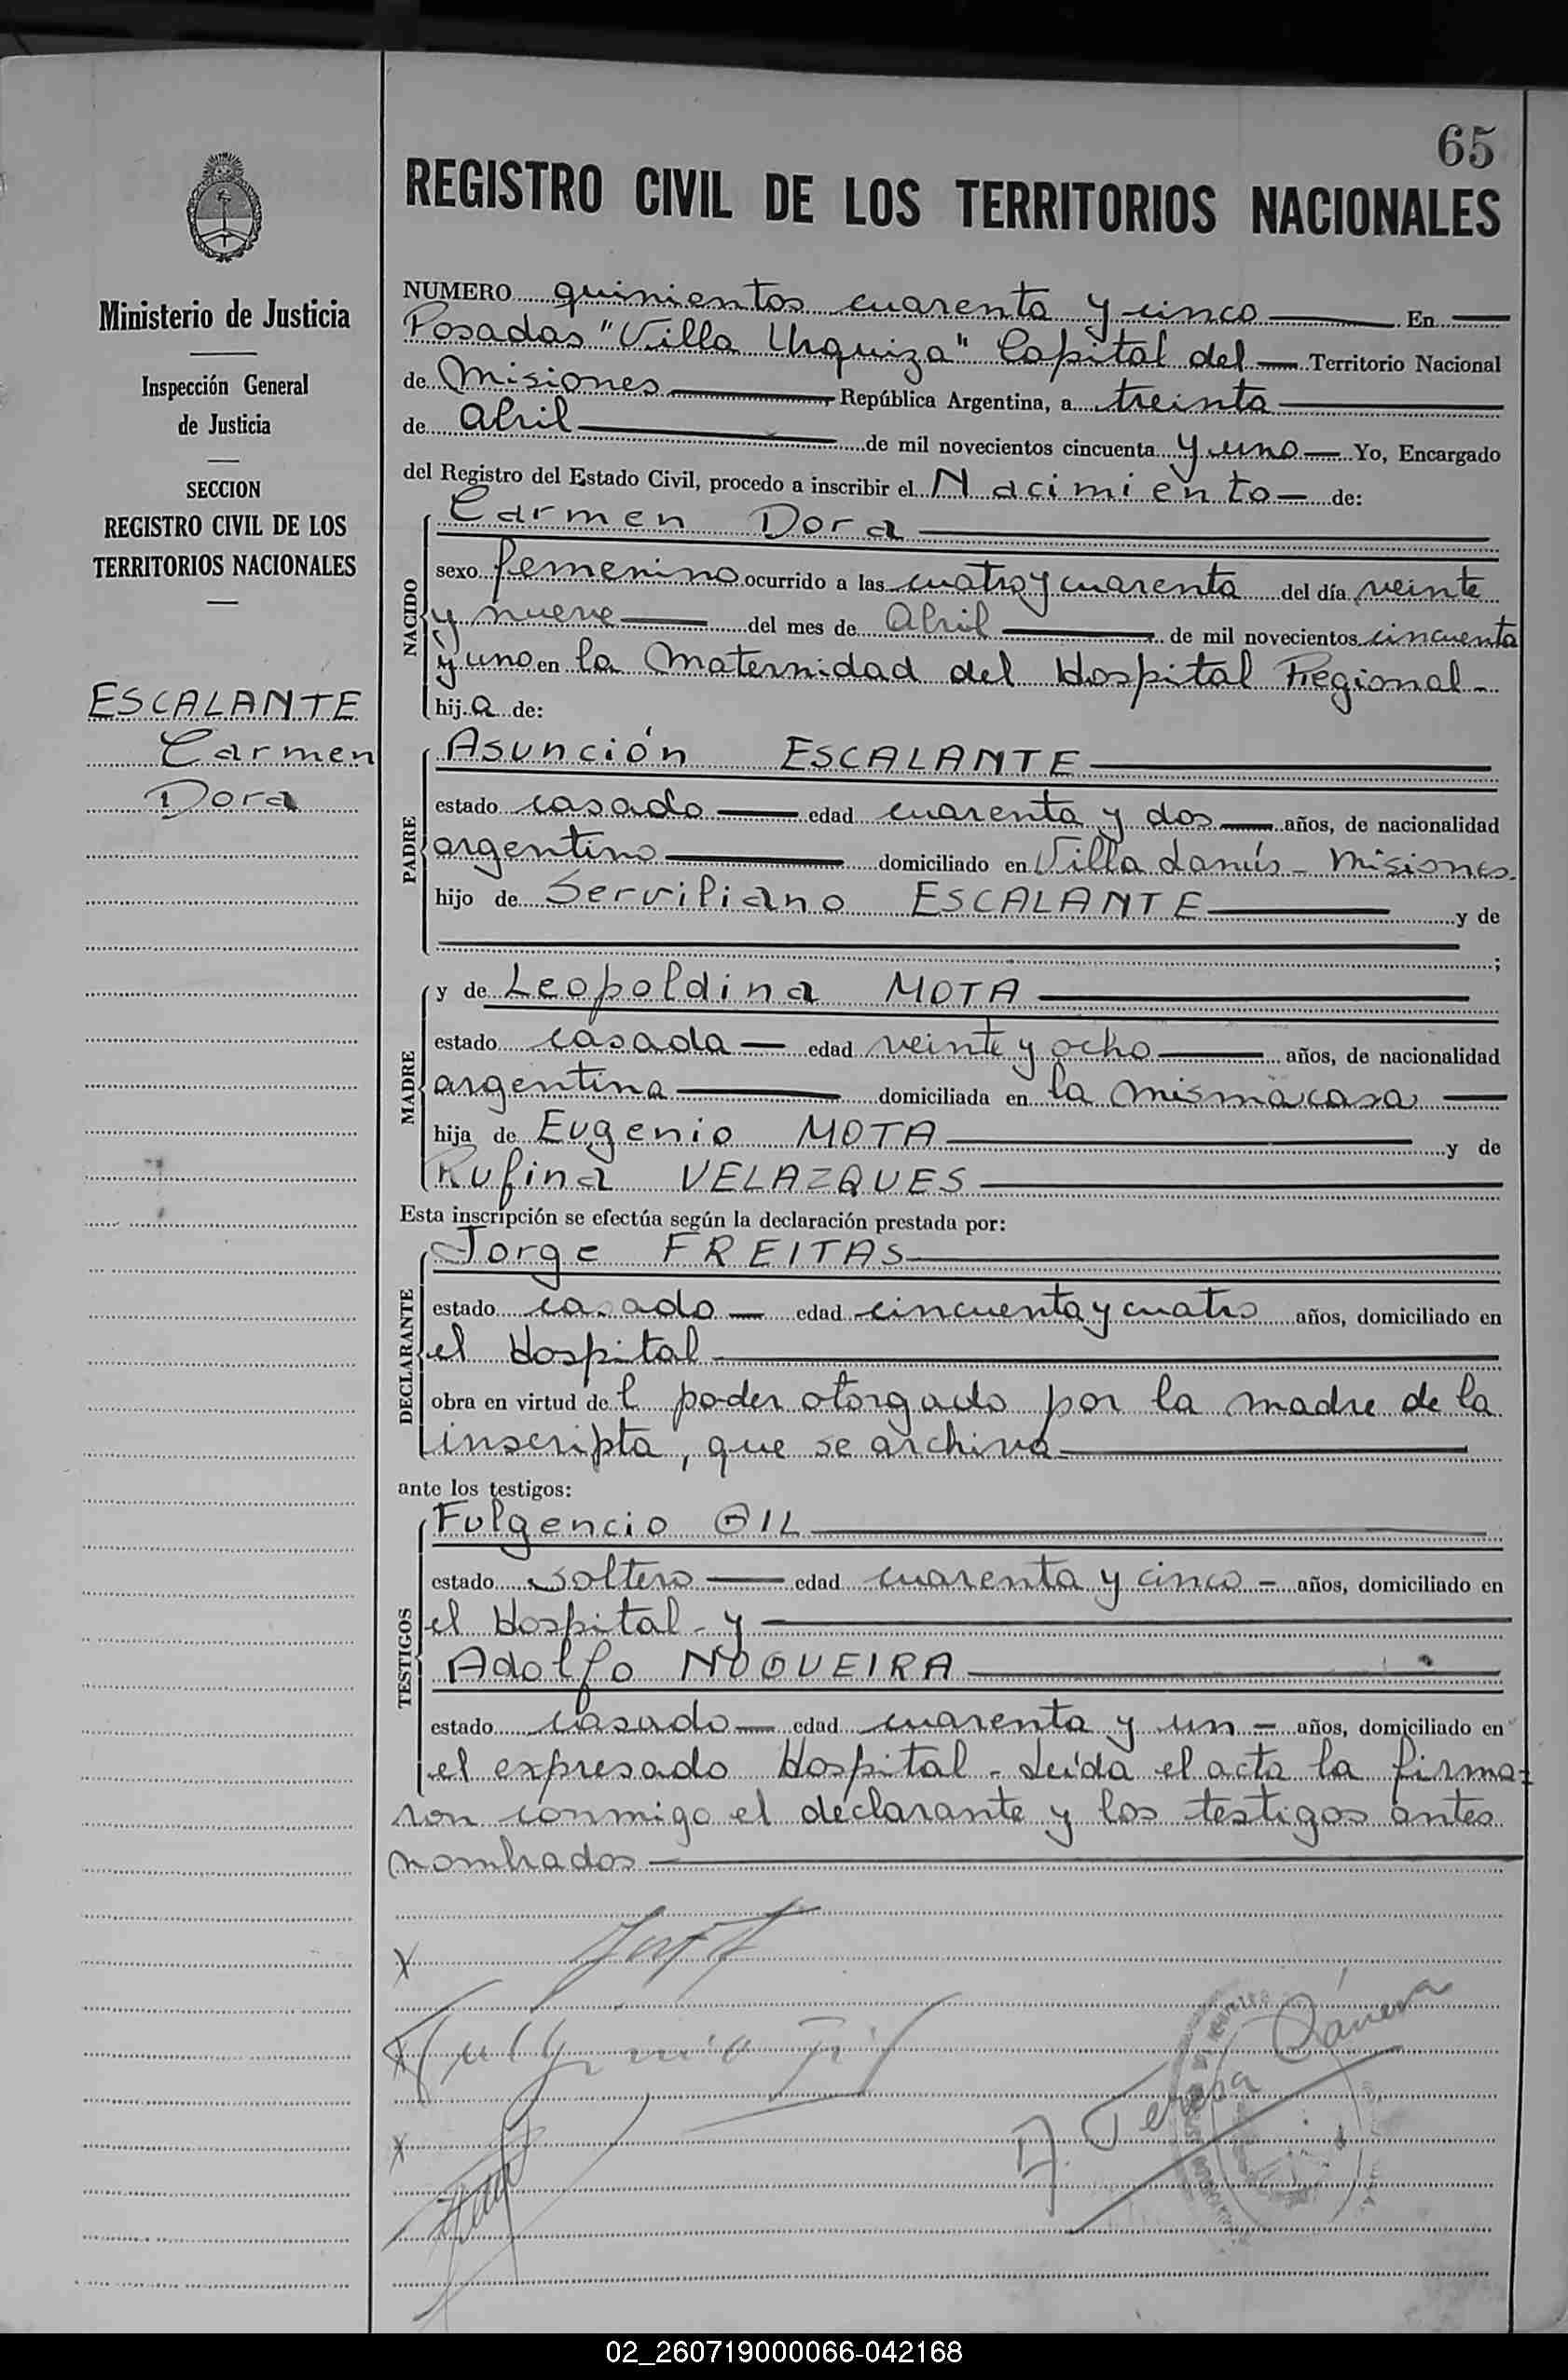 65
REGISTRO CIVIL DE LOS TERRITORIOS NACIONALES
Ministerio de Justicia
Inspección General
de Justicia
SECCION
REGISTRO CIVIL DE LOS
TERRITORIOS NACIONALES
ESCALANTE
Carmen
Dora
NUMERO quinientos cuarenta y cinco En
Posadas "Villa Urquiza" Capital del Territorio Nacional
de Misiones República Argentina, a treinta
de Abril de mil novecientos cincuenta y uno Yo, Encargado
del Registro del Estado Civil, procedo a inscribir el Nacimiento de:
NACIDO
Carmen Dora
sexo femenino ocurrido a las cuatro y cuarenta del día veinte
y nueve del mes de Abril de mil novecientos cincuenta
y uno en la Maternidad del Hospital Regional
hij.a de:
PADRE
Asunción ESCALANTE
estado casado edad cuarenta y dos años, de nacionalidad
argentino domiciliado en Villa Lanús - Misiones
hijo de Serviliano ESCALANTE y de
;
MADRE
y de Leopoldina MOTA
estado casada edad veinte y ocho años, de nacionalidad
argentina domiciliada en la misma casa
hija de Eugenio MOTA y de
Rufina VELAZQUES
Esta inscripción se efectúa según la declaración prestada por:
DECLARANTE
Jorge FREITAS
estado casado edad cincuenta y cuatro años, domiciliado en
el Hospital
obra en virtud del poder otorgado por la madre de la
inscripta, que se archiva
ante los testigos:
TESTIGOS
Fulgencio GIL
estado soltero edad cuarenta y cinco años, domiciliado en
el Hospital - y
Adolfo NOGUEIRA
estado casado edad cuarenta y un años, domiciliado en
el expresado Hospital - Leída el acta la firma=
ron conmigo el declarante y los testigos antes
nombrados
X
X Fulgencio Gil
X
A. Teresa
02_260719000066-042168